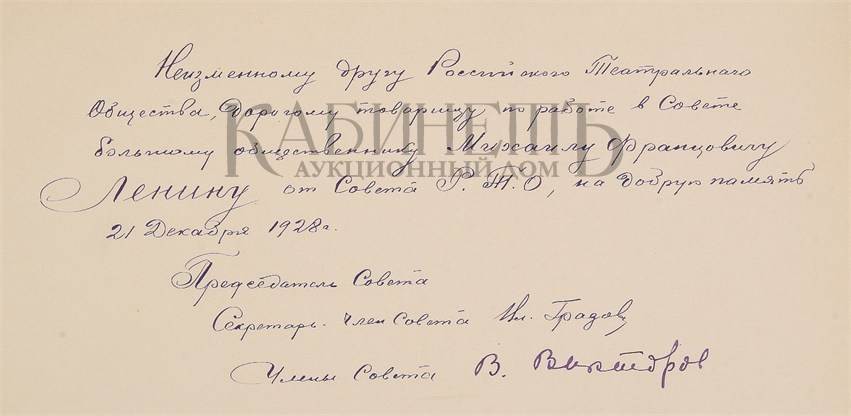 Неизменному другу Российского Театральнаго
Общества, Дорогому товарищу по работе в Совете
КАБИНЕТЪ
большому общественнику Михаилу Францовичу
АУКЦИОННЫЙ ДОМ
Ленину от Совета Р.Т.О, на добрую память
21 Декабря 1928г.
Председатель Совета
Секретарь. Член Совета Ил. Градов
Члены Совета В. Викторов